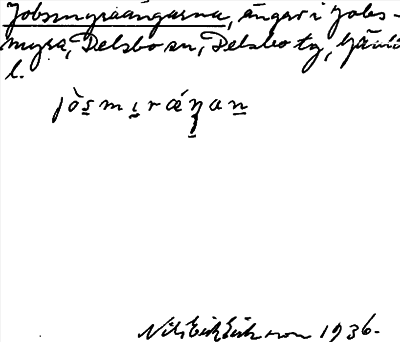 Jobsmyraängarna, ängar i Jobs-
myra, Delsbo sn, Delsbo tg, Gävleb
l.
jòs̲mı̲ráŋ̲an̲
Nils Erik Eriksson 1936.